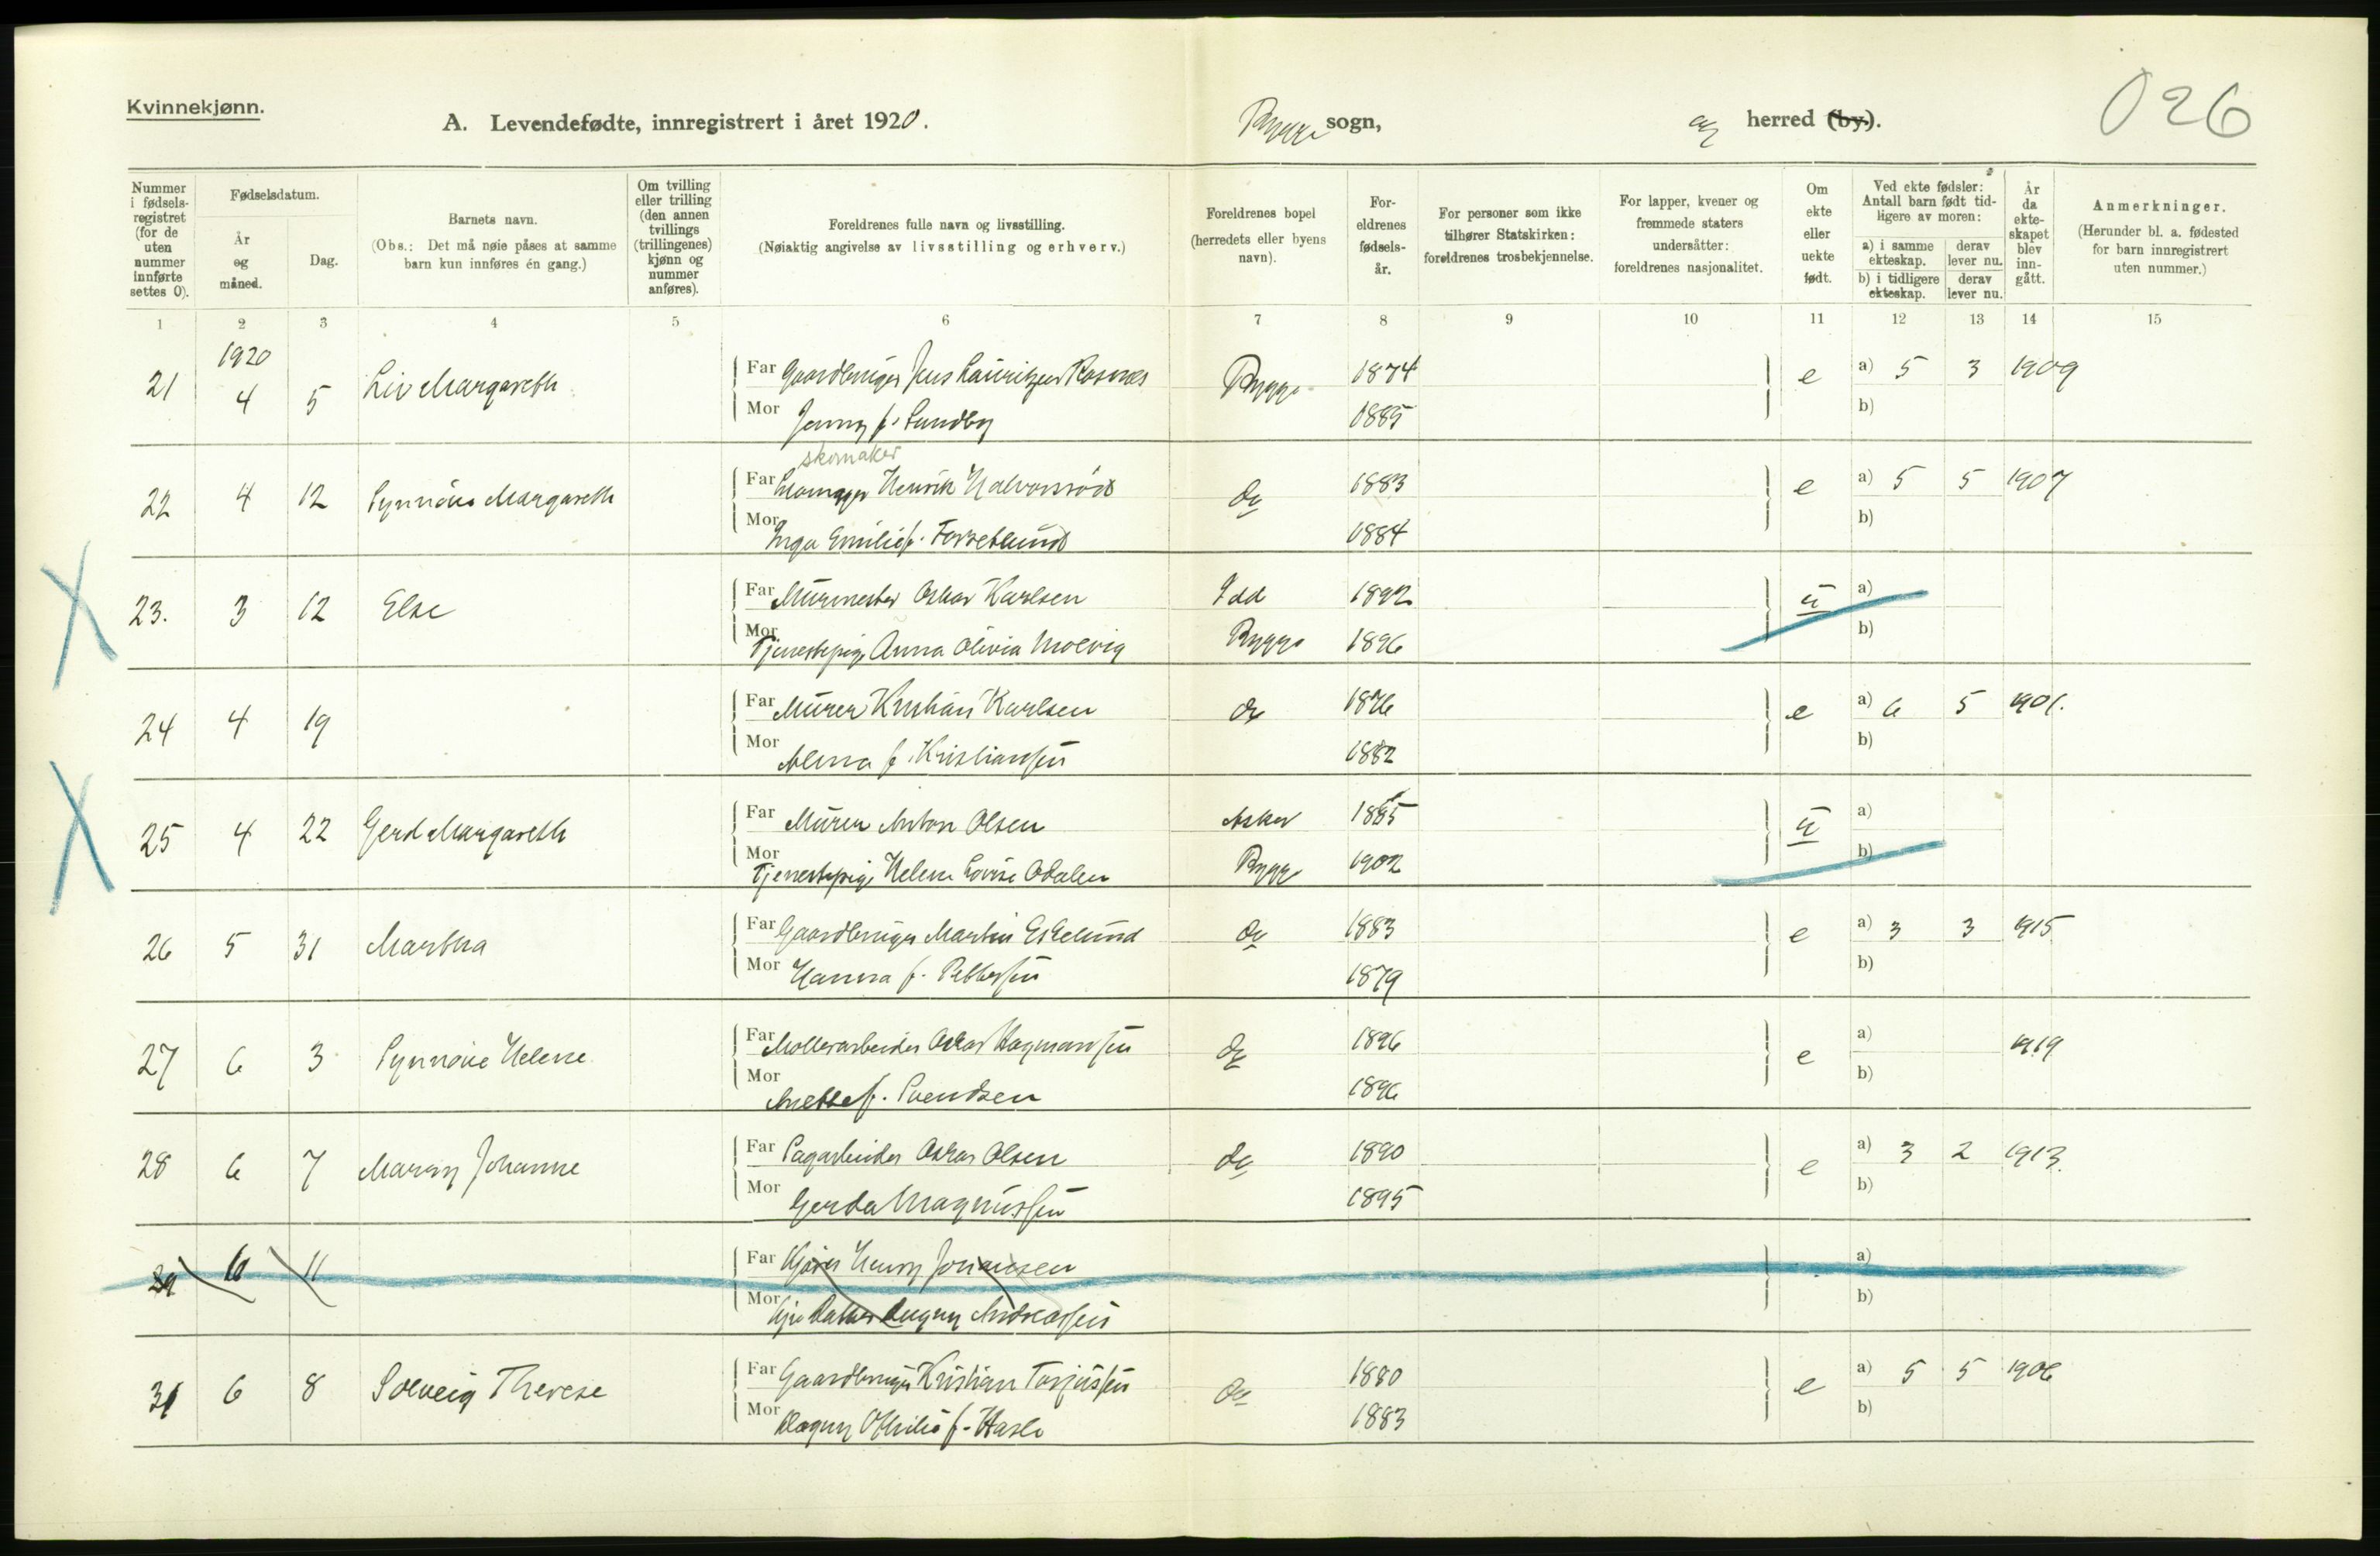 Kvinnekjønn.
A. Levendefødte, innregistrert i året 1920.
Rygge sogn,
og herred (by).
026
Nummer i fødsels-registret (for de uten nummer innførte settes 0).
Fødselsdatum.
År og måned.
Dag.
Barnets navn.
(Obs.: Det må nøie påses at samme barn kun innføres én gang.)
Om tvilling eller trilling (den annen tvillings (trillingenes) kjønn og nummer anføres).
Foreldrenes fulle navn og livsstilling.
(Nøiaktig angivelse av livsstilling og erhverv.)
Foreldrenes bopel (herredets eller byens navn).
For-eldrenes fødsels-år.
For personer som ikke tilhører Statskirken: foreldrenes trosbekjennelse.
For lapper, kvener og fremmede staters undersåtter: foreldrenes nasjonalitet.
Om ekte eller uekte født.
Ved ekte fødsler: Antall barn født tid-ligere av moren:
a) i samme ekteskap.
derav lever nu.
b) i tidligere ekteskap.
derav lever nu.
År da ekte-skapet blev inn-gått.
Anmerkninger.
(Herunder bl. a. fødested for barn innregistrert uten nummer.)
1 2 3 4 5 6 7 8 9 10 11 12 13 14 15
1920
21 4 5 Liv Margareth Far Gaardbruger Jens Lauritzen Rosnæs Rygge 1874 e a) 5 3 1909
Mor Jenny f. Sundby 1885 b)
skomaker
22 4 12 Synnöve Margareth Far Henrik Halvorsröd do 1883 e a) 5 5 1907
Mor Inga Emilie f. Torseblund 1884 b)
23. 3 12 Else Far Murmester Oskar Karlsen Idd 1892 u a)
Mor Tjenestepige Anna Olivia Molvig Rygge 1896 b)
24 4 19 Far Murer Kristian Karlsen do 1876 e a) 6 5 1901.
Mor f. Kristiansen 1882 b)
25 4 22 Gerd Margareth Far Murer Anton Olsen Asker 1885 u a)
Mor Tjenestepige Helene Lovise Odalen Rygge 1902 b)
26 5 31 Martha Far Gaardbruger Martin Eskelund do 1883 e a) 3 3 1915
Mor Hanna f. Pettersen 1879 b)
27 6 3 Synnöve Helene Far Möllerarbeider Oskar Hagmansen do 1896 e a) 1919
Mor Anette f. Svendsen 1896 b)
28 6 7 Marry Johanne Far Sagarbeider Oskar Olsen do 1890 e a) 3 2 1913.
Mor Gerda Magnussen 1895 b)
29 6 11 Far Henry Johansen a)
Mor Andreassen b)
30 6 8 Solveig Therese Far Gaardbruger Kristian Torjussen do 1880 e a) 5 5 1906
Mor Dagny Othilie f. Hasle 1883 b)